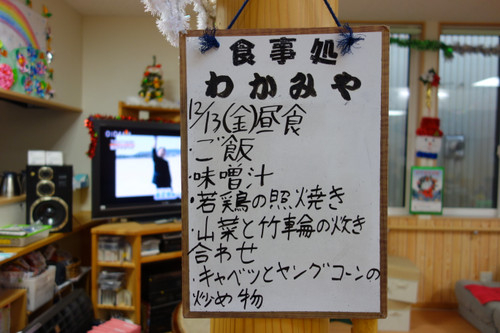 食事処
わかみや
12/13(金)昼食
・ご飯
・味噌汁
・若鶏の照焼き
・山菜と竹輪の炊き
合わせ
・キャベツとヤングコーンの
炒め物